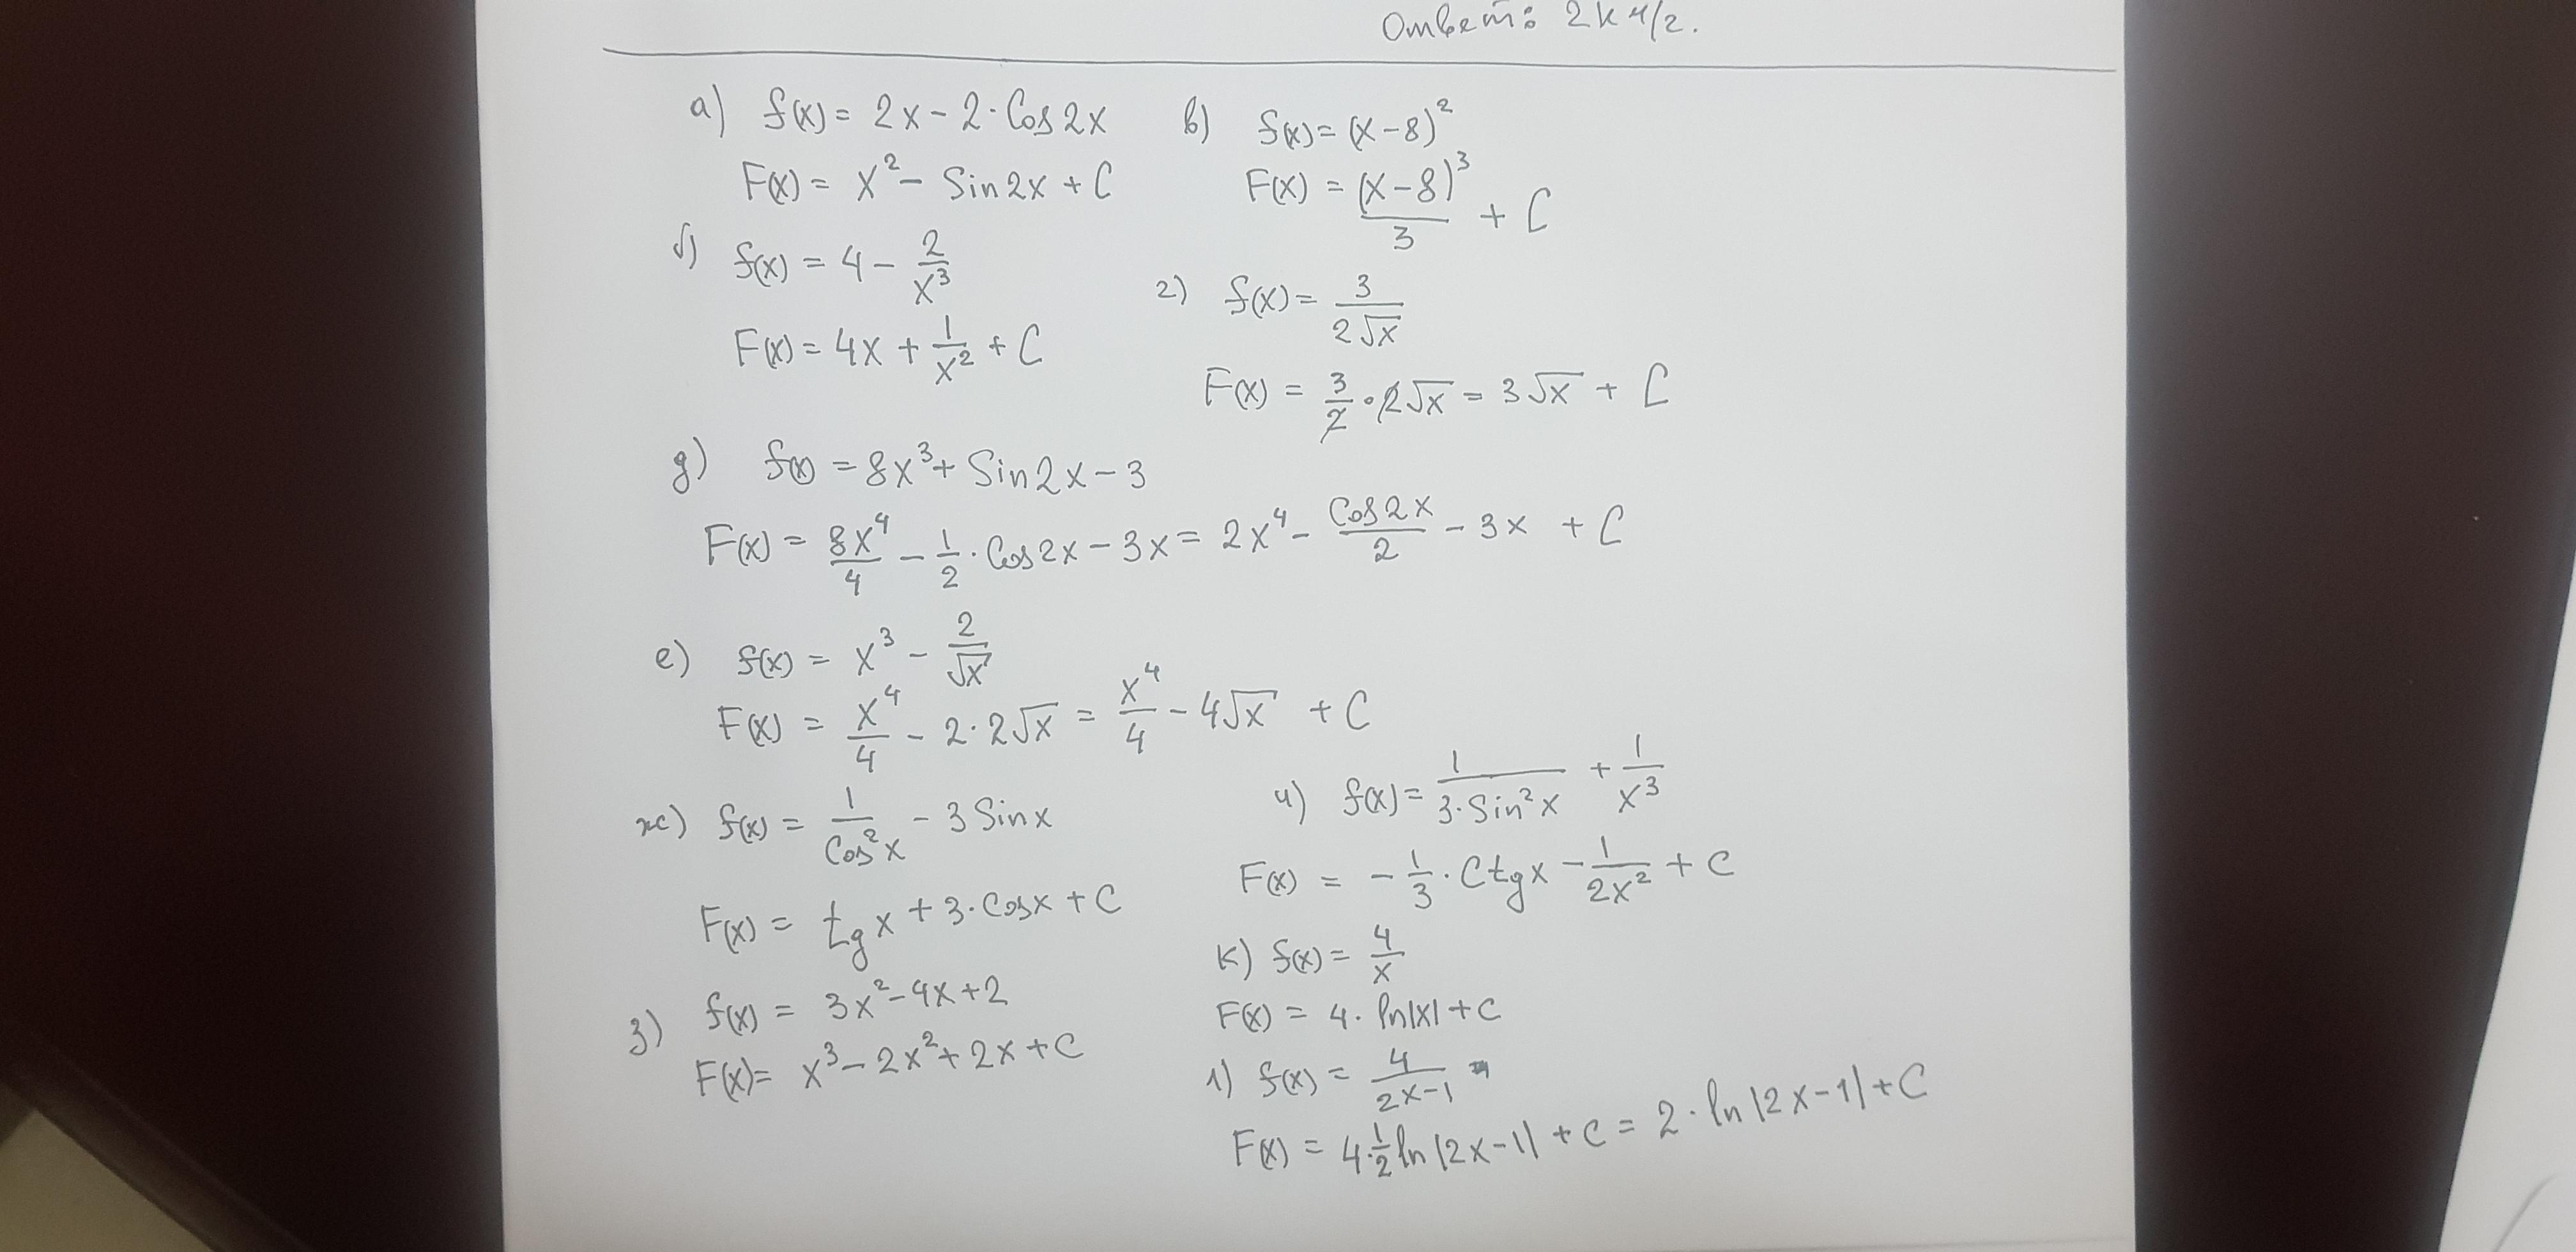 Ответ: 2 к 4/2.
а) f(x) = 2x - 2·Cos 2x
F(x) = x² - Sin 2x + C
б) f(x) = 4 - 2/x³
F(x) = 4x + 1/x² + C
в) f(x) = (x-8)²
F(x) = (x-8)³/3 + C
г) f(x) = 3/(2√x)
F(x) = 3/2 · 2√x = 3√x + C
д) f(x) = 8x³ + Sin 2x - 3
F(x) = 8x⁴/4 - 1/2 · Cos 2x - 3x = 2x⁴ - Cos 2x/2 - 3x + C
е) f(x) = x³ - 2/√x
F(x) = x⁴/4 - 2·2√x = x⁴/4 - 4√x + C
ж) f(x) = 1/Cos²x - 3 Sin x
F(x) = tg x + 3·Cos x + C
з) f(x) = 3x² - 4x + 2
F(x) = x³ - 2x² + 2x + C
и) f(x) = 1/(3·Sin²x) + 1/x³
F(x) = -1/3 · Ctg x - 1/(2x²) + C
к) f(x) = 4/x
F(x) = 4·ln|x| + C
л) f(x) = 4/(2x-1)
F(x) = 4·1/2 ln|2x-1| + C = 2·ln|2x-1| + C